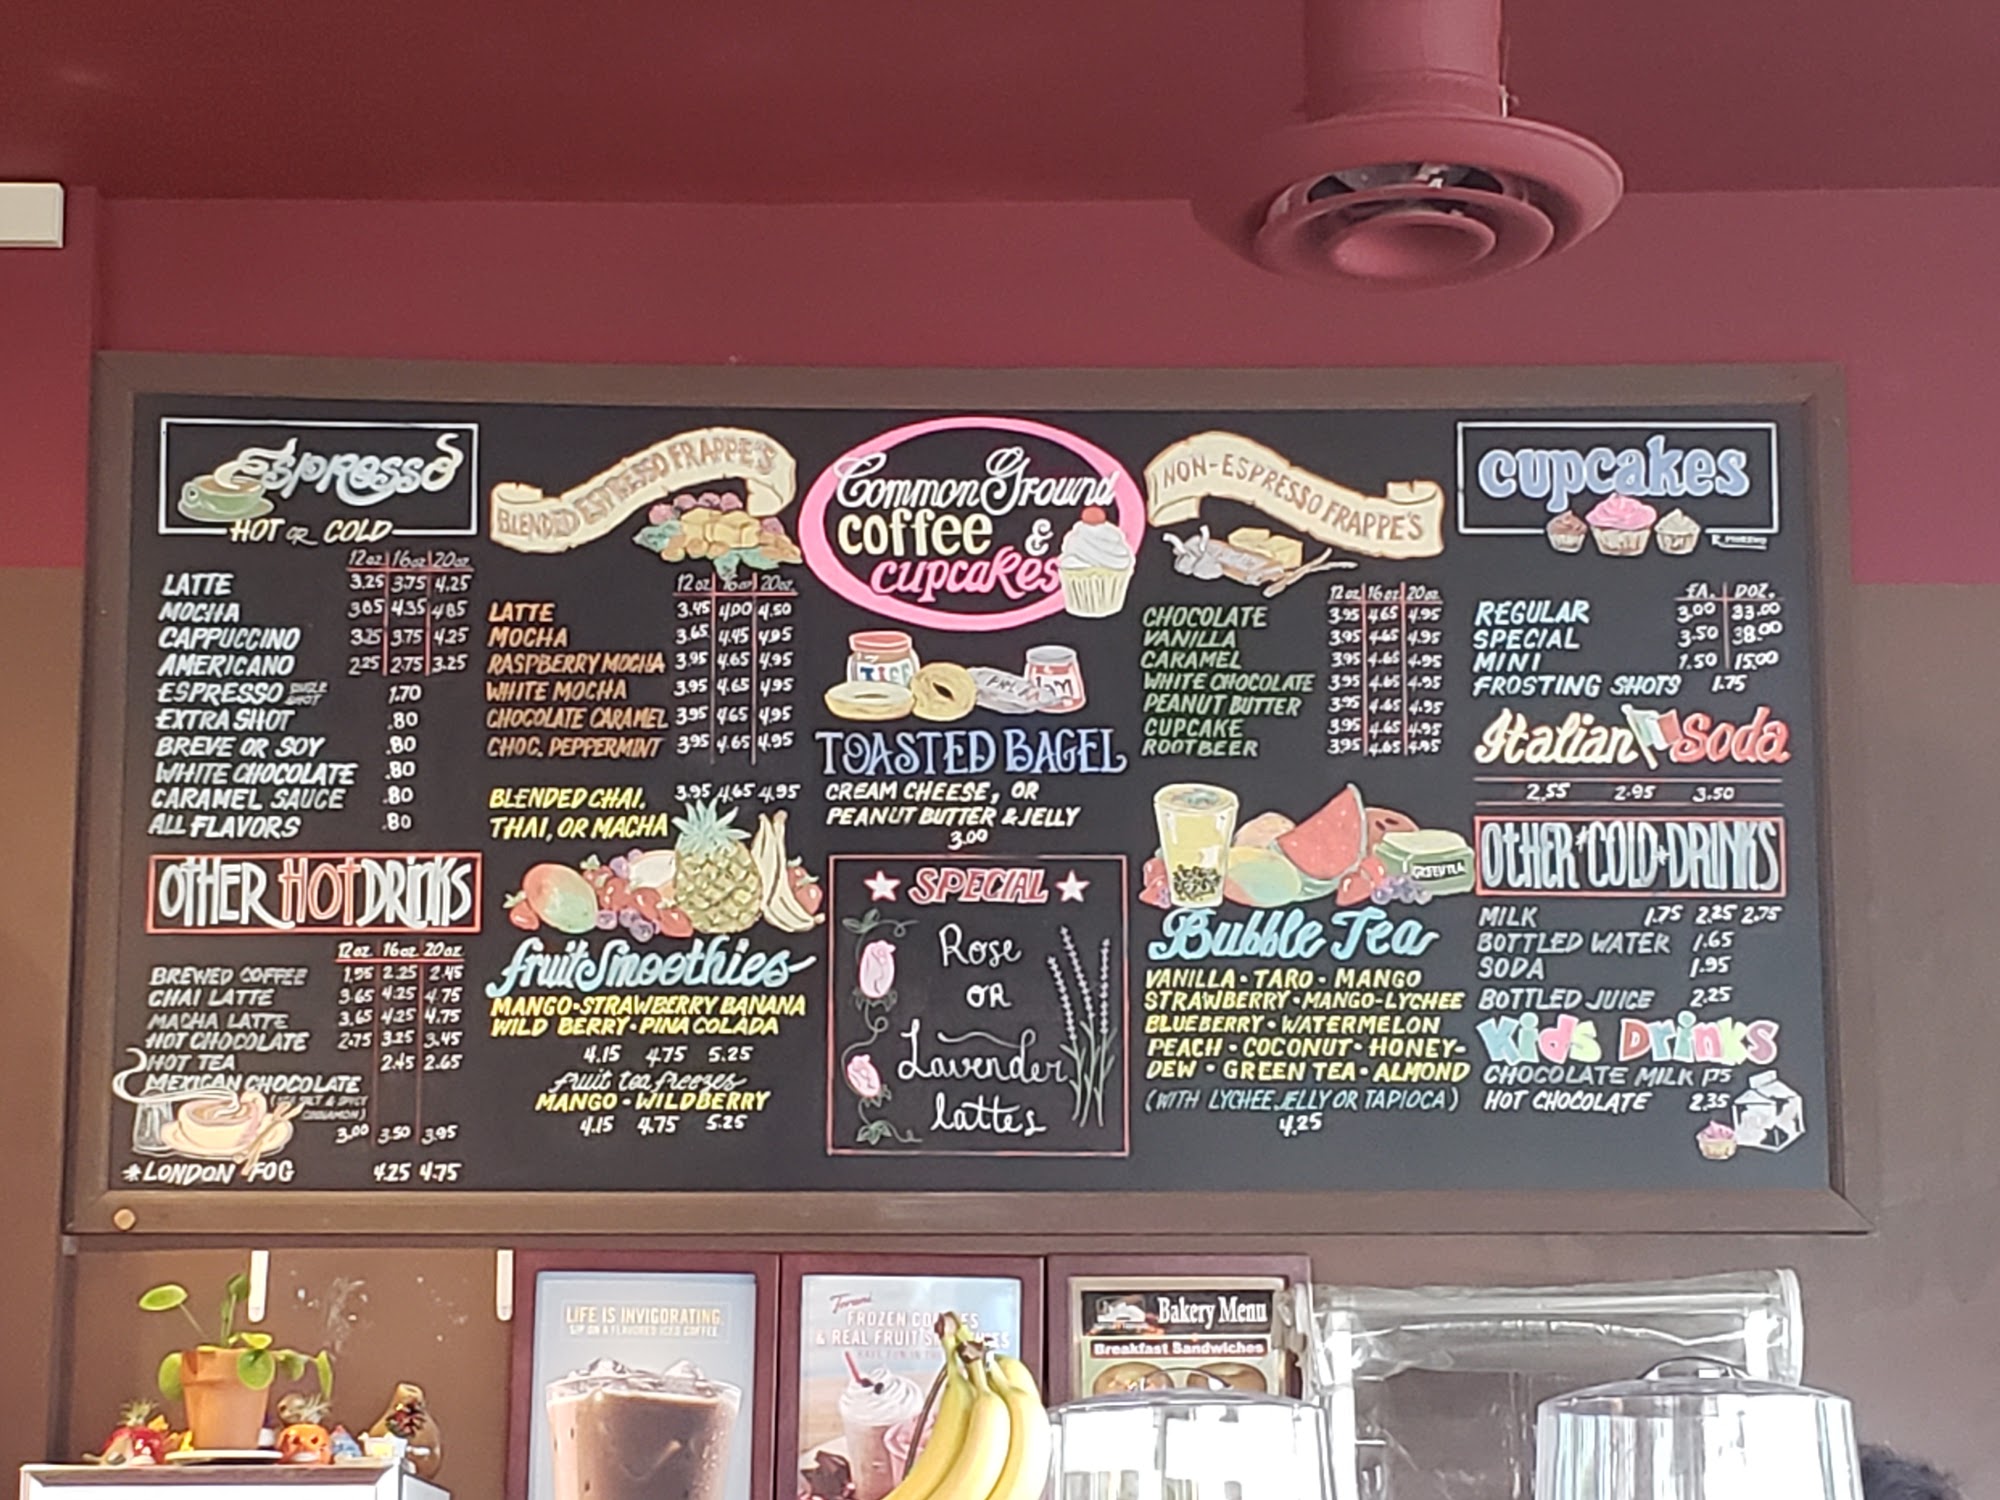 Espresso
HOT OR COLD
12oz 16oz 20oz
LATTE 3.25 3.75 4.25
MOCHA 3.85 4.35 4.85
CAPPUCCINO 3.25 3.75 4.25
AMERICANO 2.25 2.75 3.25
ESPRESSO SINGLE SHOT 1.70
EXTRA SHOT .80
BREVE OR SOY .80
WHITE CHOCOLATE .80
CARAMEL SAUCE .80
ALL FLAVORS .80
OTHER HOT DRINKS
12oz. 16oz. 20oz.
BREWED COFFEE 1.95 2.25 2.45
CHAI LATTE 3.65 4.25 4.75
MACHA LATTE 3.65 4.25 4.75
HOT CHOCOLATE 2.75 3.25 3.45
HOT TEA 2.45 2.65
MEXICAN CHOCOLATE
(SEA SALT & SPICY
CINNAMON)
3.00 3.50 3.95
*LONDON FOG 4.25 4.75
BLENDED ESPRESSO FRAPPE'S
12oz. 16oz. 20oz.
LATTE 3.45 4.00 4.50
MOCHA 3.65 4.45 4.95
RASPBERRY MOCHA 3.95 4.65 4.95
WHITE MOCHA 3.95 4.65 4.95
CHOCOLATE CARAMEL 3.95 4.65 4.95
CHOC. PEPPERMINT 3.95 4.65 4.95
BLENDED CHAI, 3.95 4.65 4.95
THAI, OR MACHA
fruit Smoothies
MANGO • STRAWBERRY BANANA
WILD BERRY • PINA COLADA
4.15 4.75 5.25
fruit tea freezes
MANGO • WILDBERRY
4.15 4.75 5.25
Common Ground
coffee &
cupcakes
Jam
TOASTED BAGEL
CREAM CHEESE, OR
PEANUT BUTTER & JELLY
3.00
SPECIAL
Rose
OR
Lavender
lattes
NON-ESPRESSO FRAPPE'S
12oz. 16oz. 20oz.
CHOCOLATE 3.95 4.65 4.95
VANILLA 3.95 4.65 4.95
CARAMEL 3.95 4.65 4.95
WHITE CHOCOLATE 3.95 4.65 4.95
PEANUT BUTTER 3.95 4.65 4.95
CUPCAKE 3.95 4.65 4.95
ROOTBEER 3.95 4.65 4.95
GREEN TEA
Bubble Tea
VANILLA • TARO • MANGO
STRAWBERRY • MANGO-LYCHEE
BLUEBERRY • WATERMELON
PEACH • COCONUT • HONEY-
DEW • GREEN TEA • ALMOND
(WITH LYCHEE JELLY OR TAPIOCA)
4.25
cupcakes
EA. DOZ.
REGULAR 3.00 33.00
SPECIAL 3.50 38.00
MINI 1.50 15.00
FROSTING SHOTS 1.75
Italian Soda
2.55 2.95 3.50
OTHER COLD DRINKS
MILK 1.75 2.25 2.75
BOTTLED WATER 1.65
SODA 1.95
BOTTLED JUICE 2.25
Kids Drinks
CHOCOLATE MILK 1.75
HOT CHOCOLATE 2.35
LIFE IS INVIGORATING
SIP ON A FLAVORED ICED COFFEE
Torani
FROZEN
& REAL FRUIT
HAVE FUN IN THE
Bakery Menu
Breakfast Sandwiches